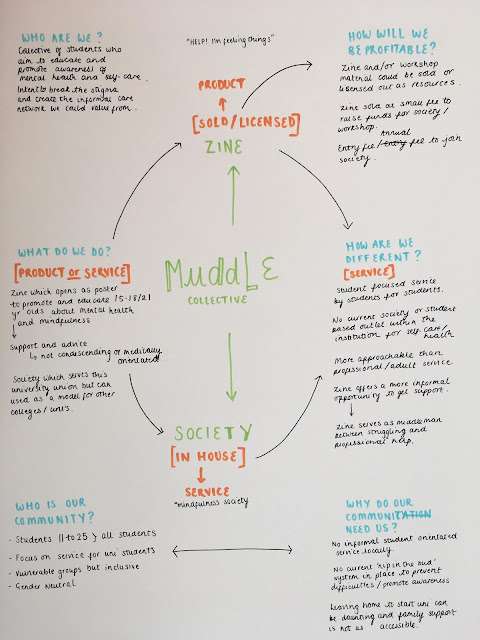 WHO ARE WE?
Collective of students who
aim to educate and
promote awareness of
mental health and self-care.
Intent to break the stigma
and create the informal care
network we could value from.
"HELP! I'm feeling things"
PRODUCT
[SOLD/LICENSED]
ZINE
HOW WILL WE
BE PROFITABLE?
Zine and/or workshop
material could be sold or
licensed out as resources.
Zine sold at small fee to
raise funds for society/
workshop.
Annual
Entry fee/Entry fee to join
society.
WHAT DO WE DO?
[PRODUCT OR SERVICE]
Zine which opens as poster
to promote and educate 15-18/21
yr olds about mental health
and mindfulness
Support and advice
not condescending or medically
orientated
Society which serves this
university union but can
used as a model for other
colleges/uni's.
MuddLE
COLLECTIVE
HOW ARE WE
DIFFERENT?
[SERVICE]
Student focused service
by students for students.
No current society or student
based outlet within the
institution for self-care/
health
More approachable than
professional/adult service.
Zine offers a more informal
opportunity to get support.
Zine serves as middleman
between struggling and
professional help.
SOCIETY
[IN HOUSE]
SERVICE
*mindfulness society
WHO IS OUR
COMMUNITY?
- Students 11 to 25 } all students
- Focus on service for uni students
- Vulnerable groups but inclusive
- Gender Neutral
WHY DO OUR
COMMUNITATION
NEED US?
No informal student orientated
service locally.
No current 'nip in the bud'
system in place to prevent
difficulties/promote awareness
Leaving home to start uni can
be daunting and family support
is not as accessible.